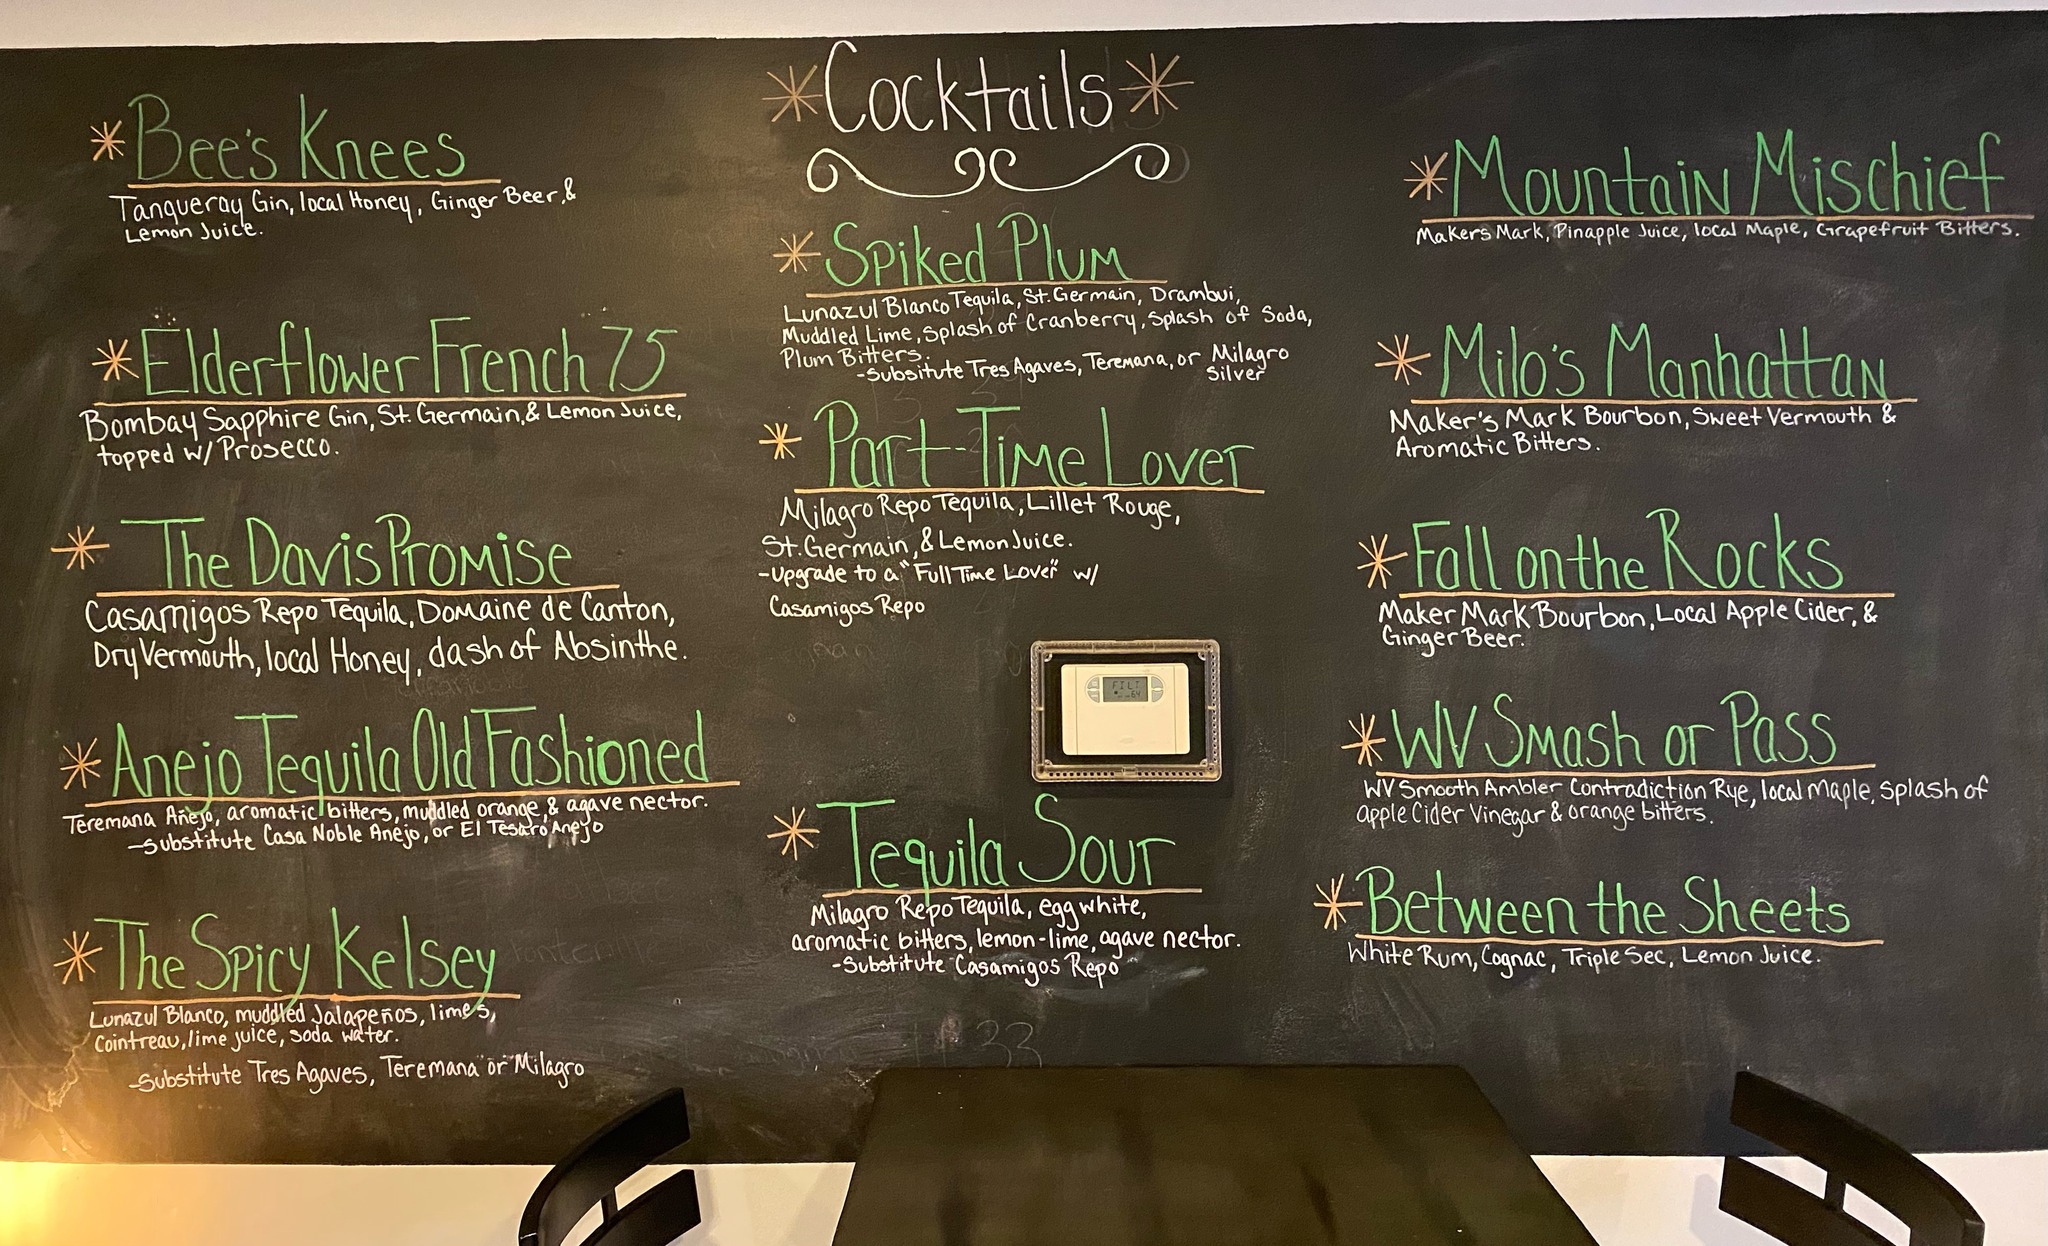 Cocktails
Bee's Knees
Tanqueray Gin, local Honey, Ginger Beer, &
Lemon Juice.
Elderflower French 75
Bombay Sapphire Gin, St. Germain, & Lemon Juice,
topped w/ Prosecco.
The Davis Promise
Casamigos Repo Tequila, Domaine de Canton,
Dry Vermouth, local Honey, dash of Absinthe.
Anejo Tequila Old Fashioned
Teremana Añejo, aromatic bitters, muddled orange, & agave nector.
-Substitute Casa Noble Anejo, or El Tesaro Anejo
The Spicy Kelsey
Lunazul Blanco, muddled Jalapeños, limes,
Cointreau, lime juice, soda water.
-Substitute Tres Agaves, Teremana or Milagro
Spiked Plum
Lunazul Blanco Tequila, St. Germain, Drambui,
Muddled Lime, Splash of Cranberry, Splash of Soda,
Plum Bitters.
-Subsitute Tres Agaves, Teremana, or Milagro
Silver
Part-Time Lover
Milagro Repo Tequila, Lillet Rouge,
St. Germain, & Lemon Juice.
-Upgrade to a "Full Time Lover" w/
Casamigos Repo
FILT
64
Tequila Sour
Milagro Repo Tequila, egg white,
aromatic bitters, lemon-lime, agave nector.
-Substitute Casamigos Repo
Mountain Mischief
Makers Mark, Pinapple Juice, local Maple, Grapefruit Bitters.
Milo's Manhattan
Maker's Mark Bourbon, Sweet Vermouth &
Aromatic Bitters.
Fall on the Rocks
Maker Mark Bourbon, Local Apple Cider, &
Ginger Beer.
WV Smash or Pass
WV Smooth Ambler Contradiction Rye, local maple, splash of
apple Cider Vinegar & orange bitters.
Between the Sheets
White Rum, Cognac, Triple Sec, Lemon Juice.
33